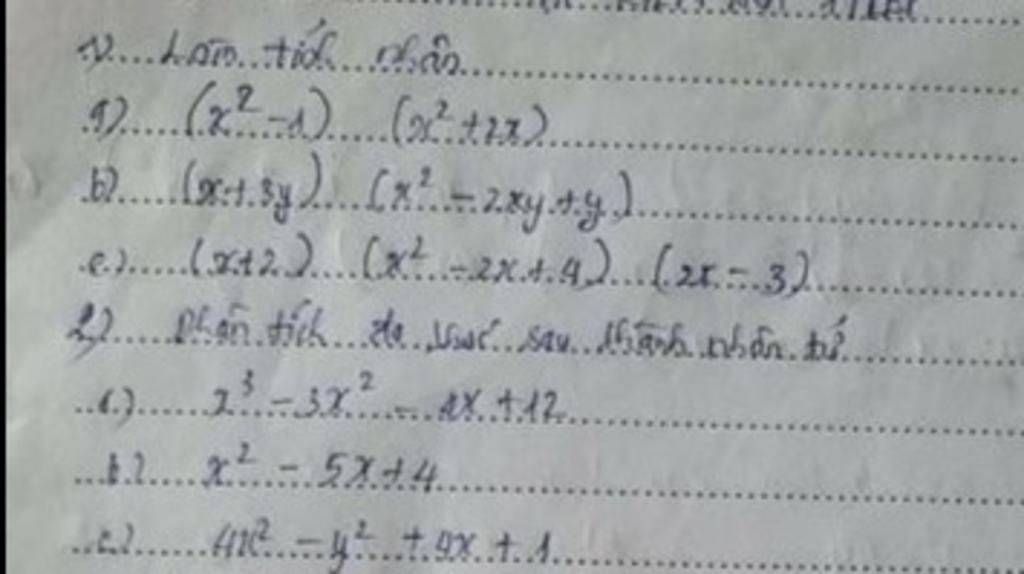 1) Làm tích nhân
a) (x² - 1) (x² + 2x)
b) (x + 3y) (x² - 2xy + y)
c) (x + 2) (x² - 2x + 4) (2x - 3)
2) Phân tích đa thức sau thành nhân tử
a) x³ - 3x² - 4x + 12
b) x² - 5x + 4
c) 4x² - y² + 9x + 1